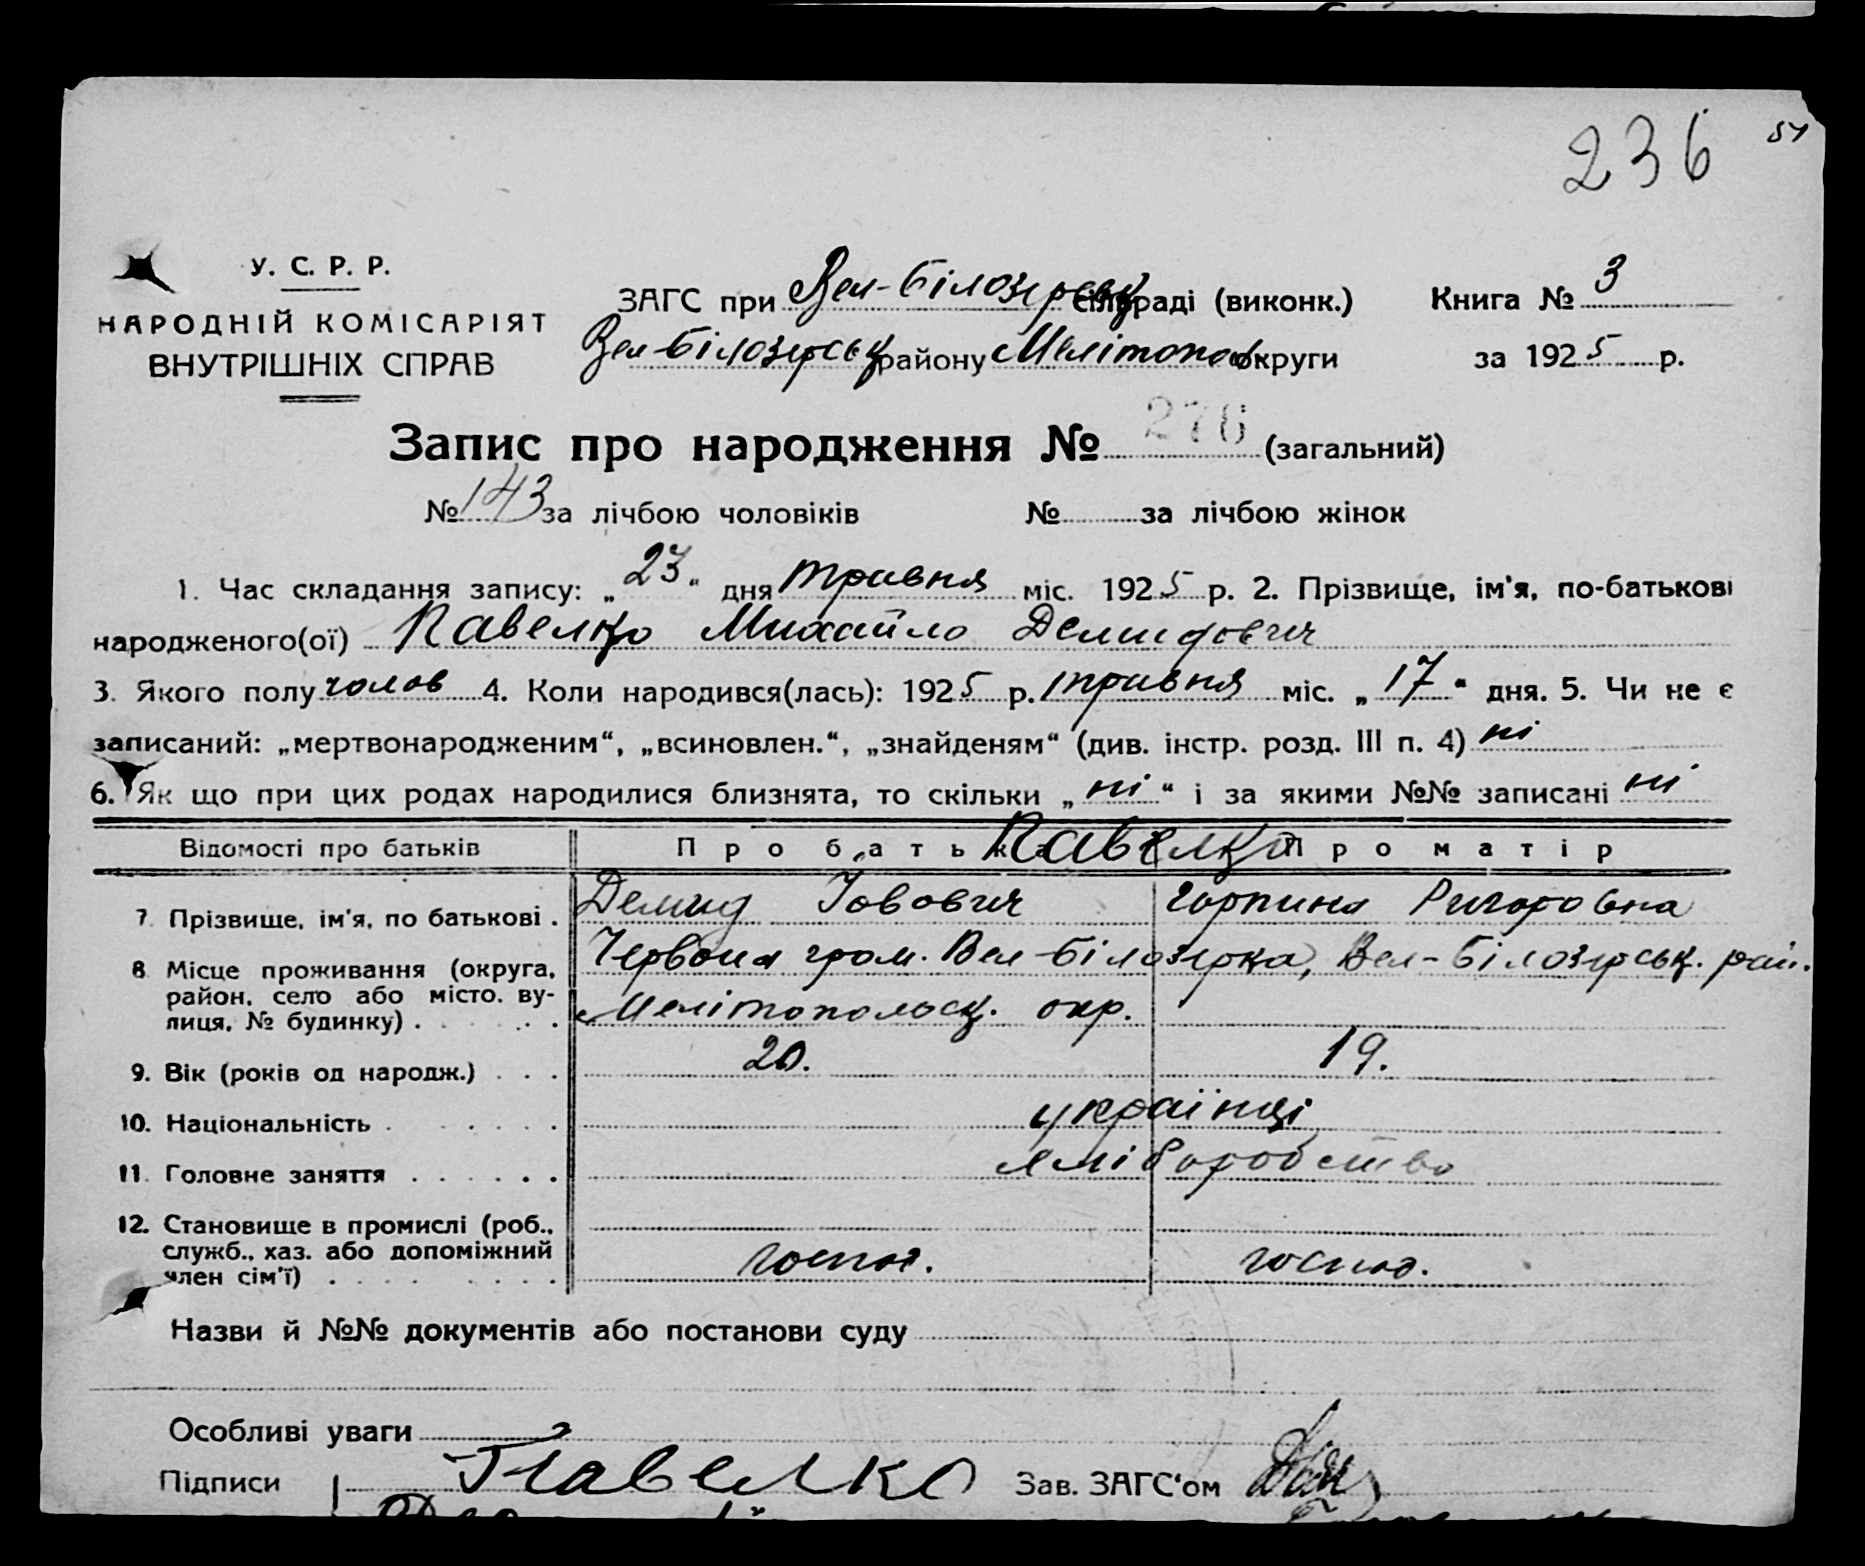 236 51
У. С. Р. Р.
НАРОДНІЙ КОМІСАРІЯТ
ВНУТРІШНІХ СПРАВ
ЗАГС при Вел-Білозерськ сільраді (виконк.) Книга № 3
Вел-Білозерськ району Мелітопол. округи за 1925 р.
Запис про народження № 276 (загальний)
№ 143 за лічбою чоловіків № за лічбою жінок
1. Час складання запису: „23“ дня травня міс. 1925 р. 2. Прізвище, ім'я, по-батькові
народженого(ої) Павелко Михайло Демидович
3. Якого полу чолов 4. Коли народився(лась): 1925 р. травня міс. „17“ дня. 5. Чи не є
записаний: „мертвонародженим“, „всиновлен.“, „знайденям“ (див. інстр. розд. III п. 4) ні
6. Як що при цих родах народилися близнята, то скільки „ні“ і за якими №№ записані ні
Відомості про батьків Про батька Павелко Про матір
7. Прізвище, ім'я, по батькові . Демид Йовович Горпина Ригоровна
8. Місце проживання (округа, Червона гром. Вел-Білозерка, Вел-Білозерськ. рай.
район, село або місто, ву-
лиця, № будинку) . . . . Мелітопольск. окр.
9. Вік (років од народж.) . . . 20. 19.
10. Національність . . . . . . українці
11. Головне заняття . . . . . . хліборобство
12. Становище в промислі (роб.,
служб., хаз. або допоміжний
член сім'ї) . . . . . . господ. господ.
Назви й №№ документів або постанови суду
Особливі уваги
Підписи Павелко Зав. ЗАГС'ом